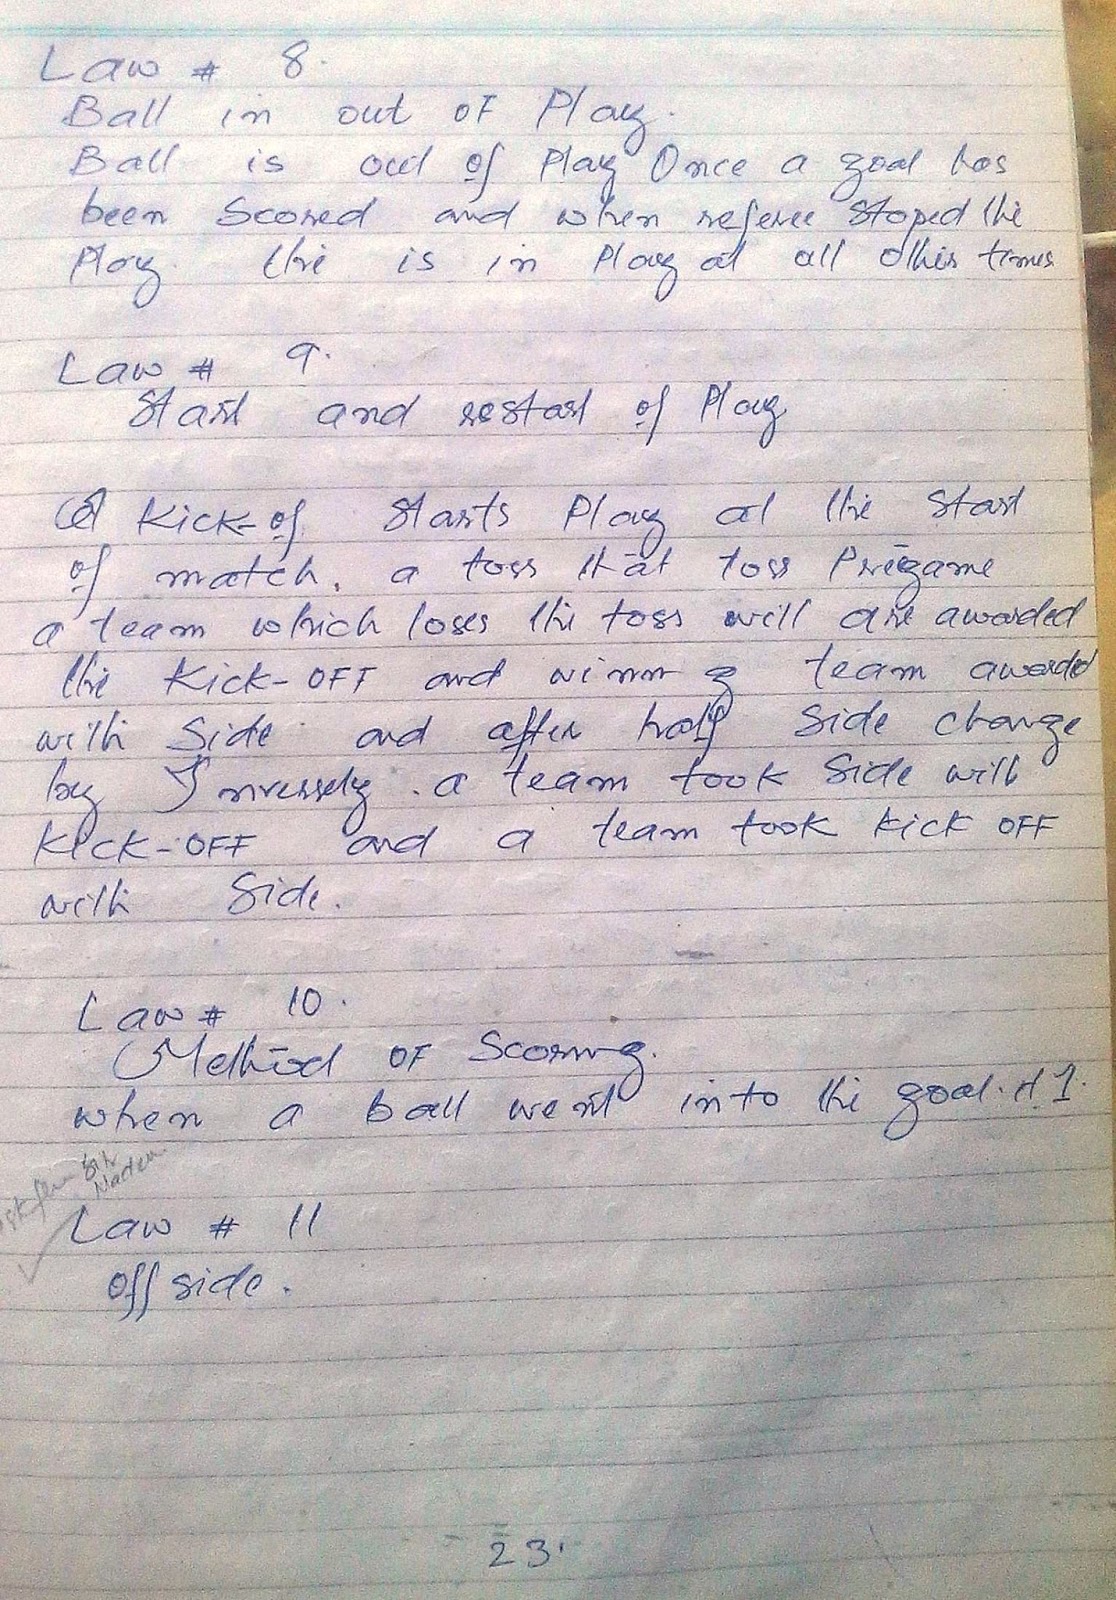 Law # 8.
Ball in out OF Play.
Ball is out of Play Once a goal has
been Scored and when referee stoped the
Play. the is in Play at all other times
Law # 9.
Start and restart of Play
A Kick-of starts Play at the start
of match. a toss that toss Pregame
a team which loses the toss will are awarded
the Kick-OFF and winnng team awarded
with Side and after half side change
by Inversely. a team took Side will
Kick-OFF and a team took Kick OFF
with Side.
Law # 10.
Method OF Scoring.
when a ball went into the goal.
Sir
Law # 11
offside.
23.